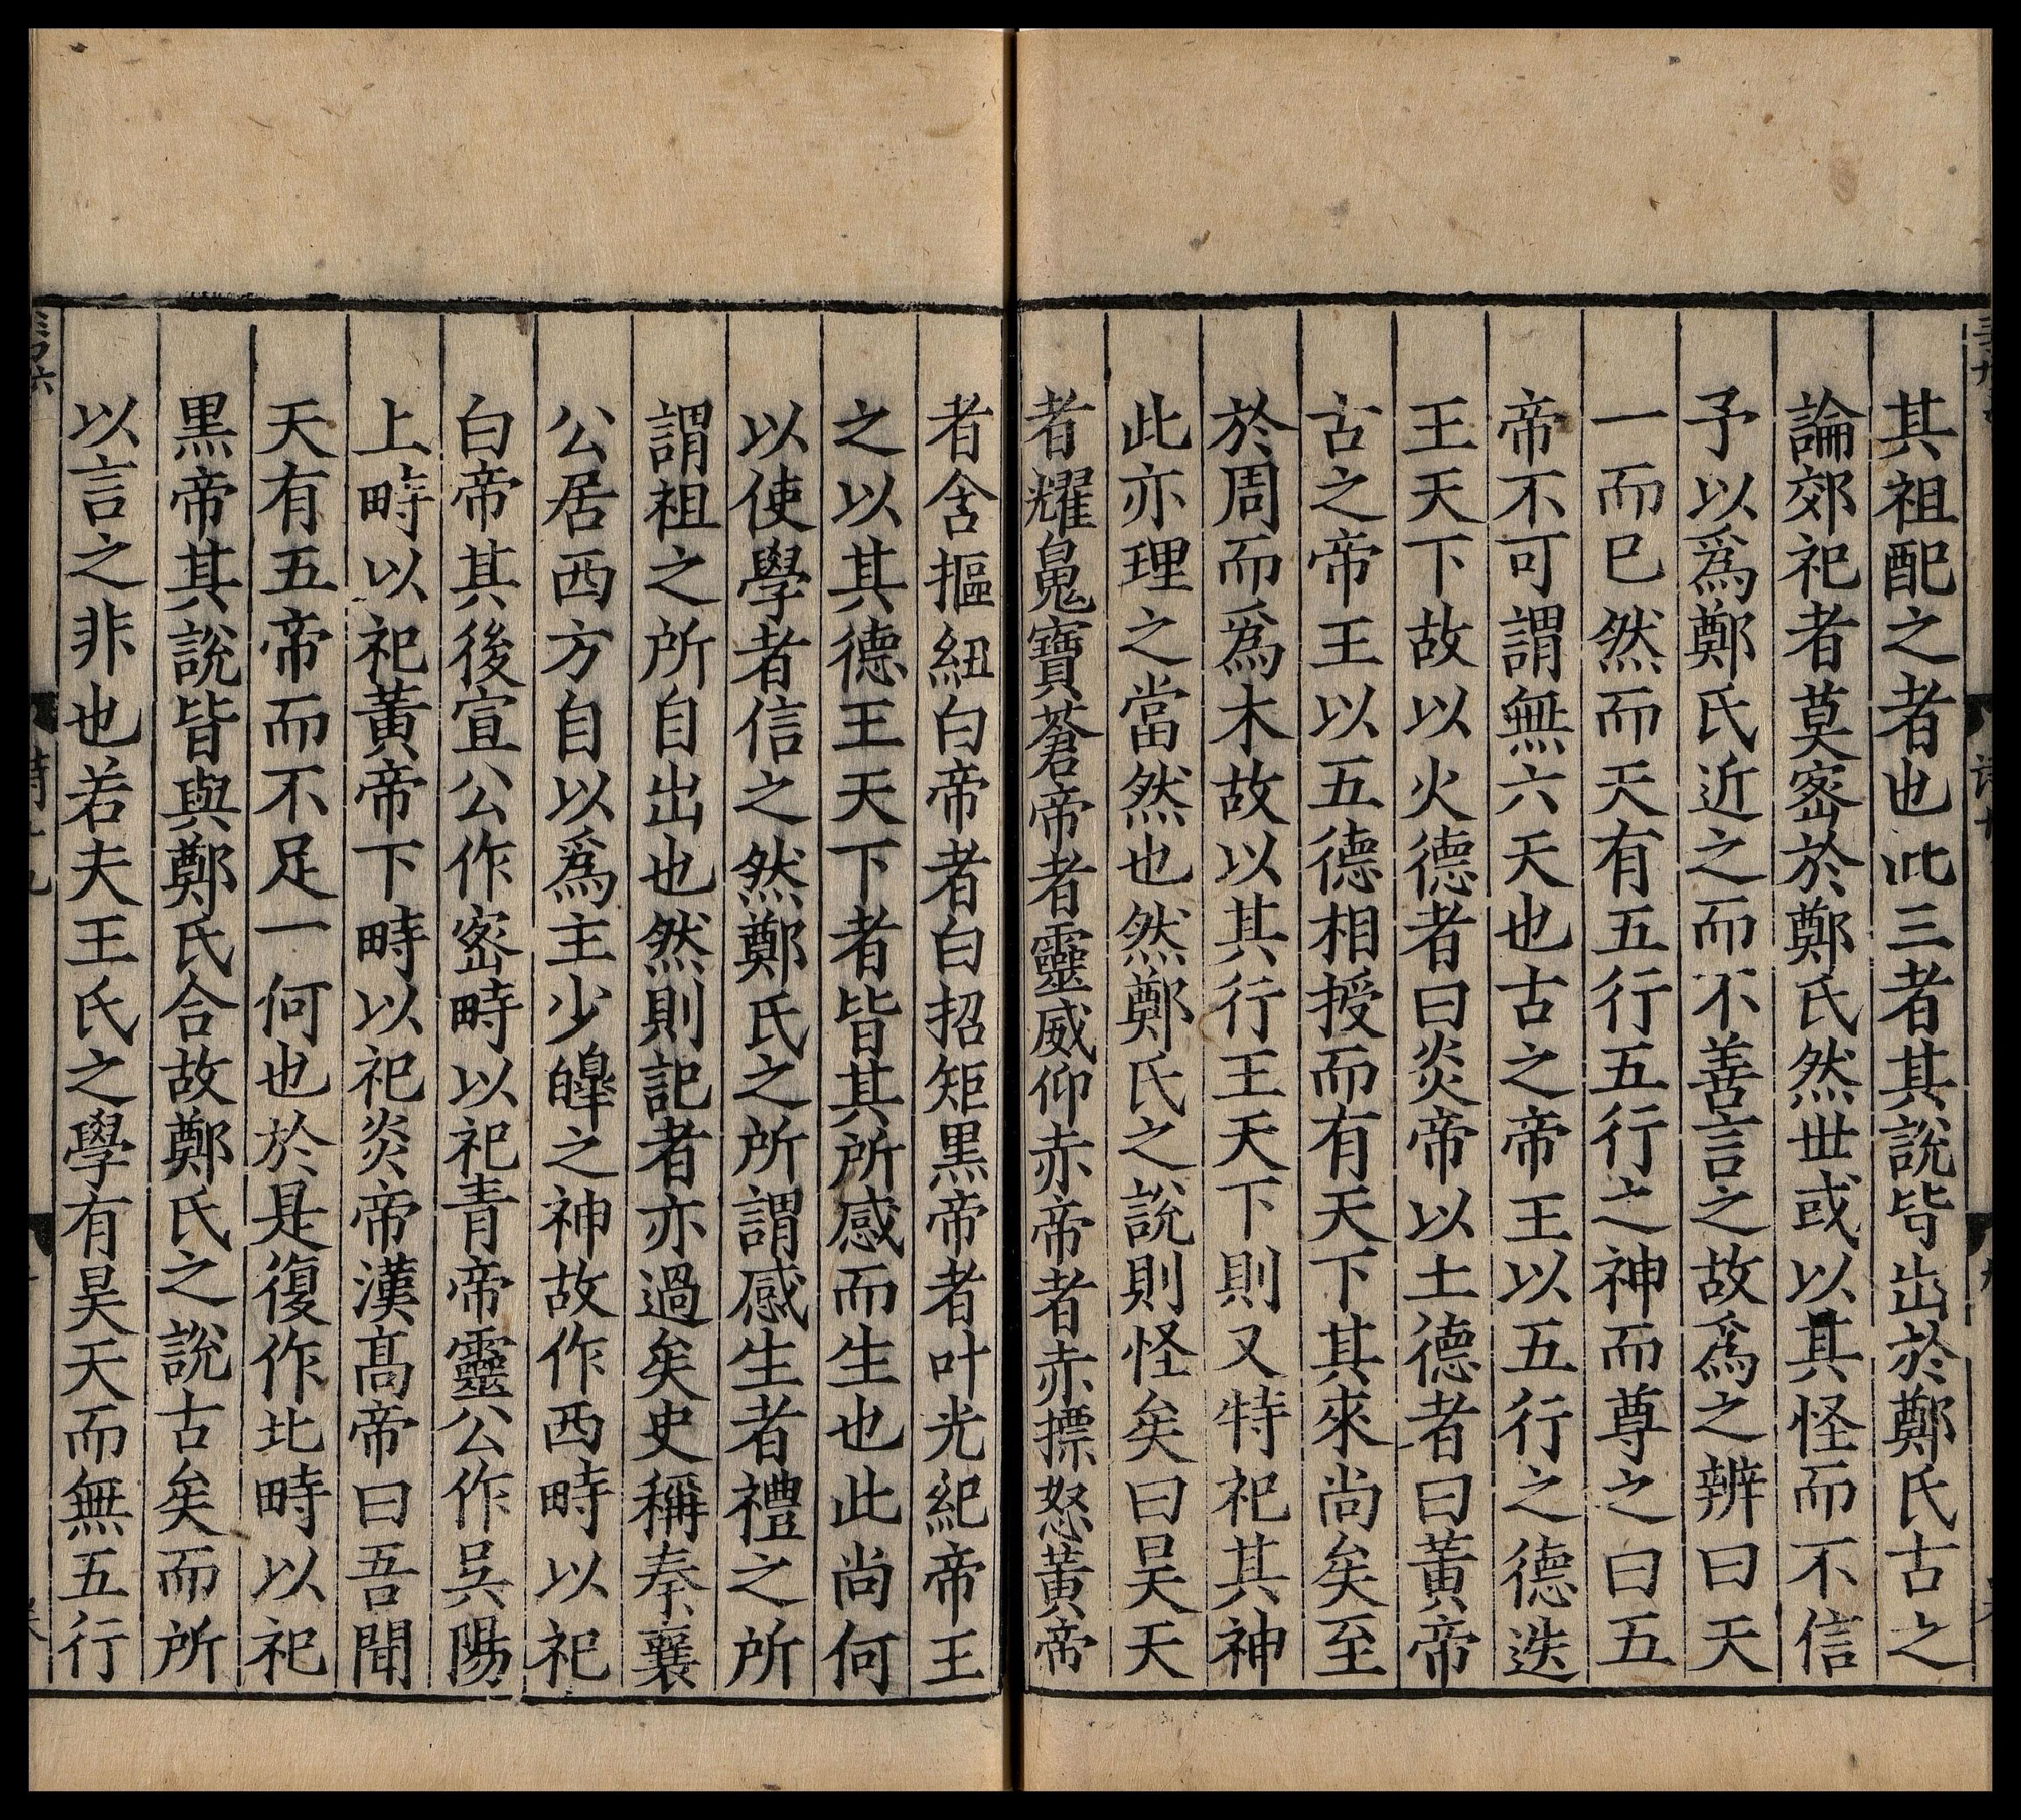 其祖配之者也此三者其說皆出於鄭氏古之
論郊祀者莫密於鄭氏然世或以其怪而不信
予以爲鄭氏近之而不善言之故爲之辨曰天
一而已然而天有五行五行之神而尊之曰五
帝不可謂無六天也古之帝王以五行之德迭
王天下故以火德者曰炎帝以土德者曰黃帝
古之帝王以五德相授而有天下其來尚矣至
於周而爲木故以其行王天下則又特祀其神
此亦理之當然也然鄭氏之說則怪矣曰昊天
者耀鬼寶蒼帝者靈威仰赤帝者赤摽怒黃帝
者含摳紐白帝者白招矩黑帝者叶光紀帝王
之以其德王天下者皆其所感而生也此尚何
以使學者信之然鄭氏之所謂感生者禮之所
謂祖之所自出也然則記者亦過矣史稱秦襄
公居西方自以爲主少皥之神故作西畤以祀
白帝其後宣公作密畤以祀青帝靈公作吳陽
上畤以祀黃帝下畤以祀炎帝漢高帝曰吾聞
天有五帝而不足一何也於是復作北畤以祀
黑帝其說皆與鄭氏合故鄭氏之說古矣而所
以言之非也若夫王氏之學有昊天而無五行